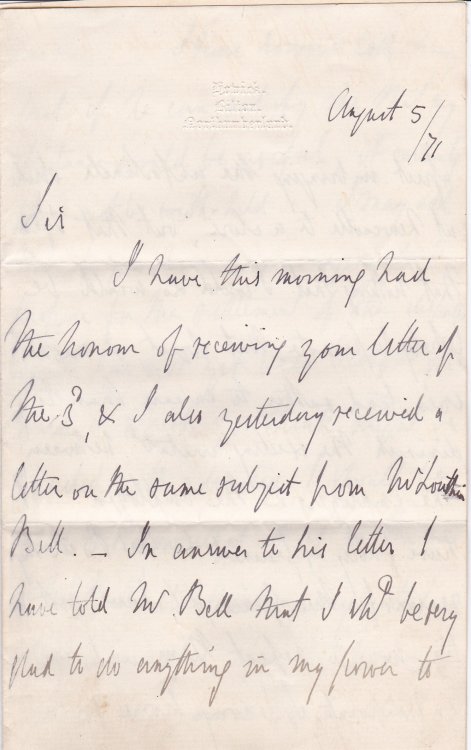 Howick.
Bilton.
Northumberland.
August 5/71
Sir
I have this morning had
the honour of receiving your letter of
the 3d, & I also yesterday received a
letter on the same subject from Mr Lowthian
Bell. – In answer to his letter I
have told Mr. Bell that I shd be very
glad to do anything in my power to